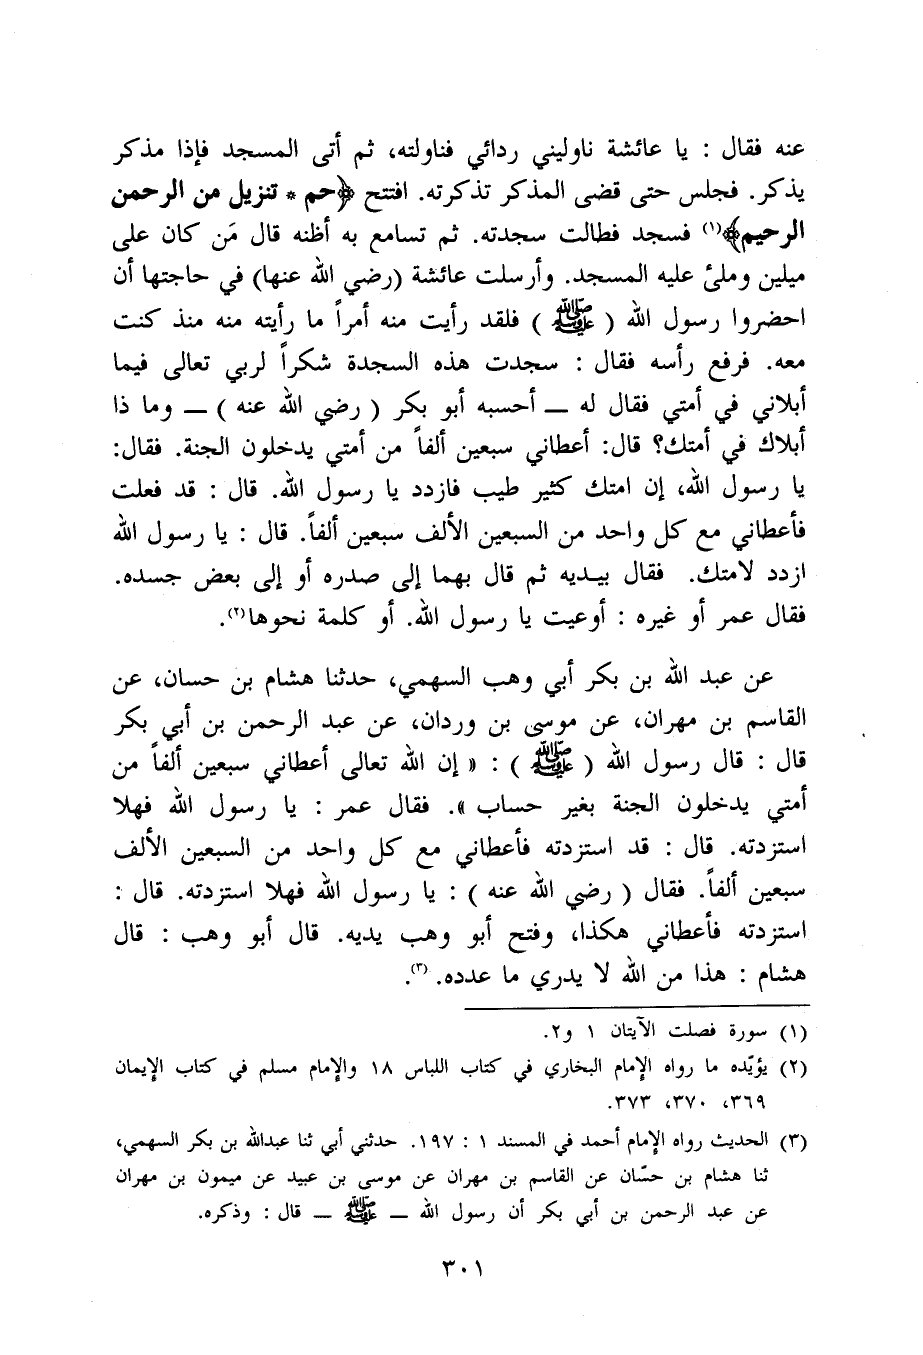 عنه فقال : يا عائشة ناوليني ردائي فناولته، ثم أتى المسجد فإذا مذكر
يذكر. فجلس حتى قضى المذكر تذكرته. افتتح ﴿حم * تنزيل من الرحمن
الرحيم﴾(١) فسجد فطالت سجدته. ثم تسامع به أظنه قال مَن كان على
ميلين وملئ عليه المسجد. وأرسلت عائشة (رضي الله عنها) في حاجتها أن
احضروا رسول الله ( ﷺ ) فلقد رأيت منه أمراً ما رأيته منه منذ كنت
معه. فرفع رأسه فقال : سجدت هذه السجدة شكراً لربي تعالى فيما
أبلاني في أمتي فقال له ــ أحسبه أبو بكر ( رضي الله عنه ) ــ وما ذا
أبلاك في أمتك؟ قال: أعطاني سبعين ألفاً من أمتي يدخلون الجنة. فقال:
يا رسول الله، إن امتك كثير طيب فازدد يا رسول الله. قال : قد فعلت
فأعطاني مع كل واحد من السبعين الألف سبعين ألفاً. قال : يا رسول الله
ازدد لامتك. فقال بيديه ثم قال بهما إلى صدره أو إلى بعض جسده.
فقال عمر أو غيره : أوعيت يا رسول الله. أو كلمة نحوها(٢).
عن عبد الله بن بكر أبي وهب السهمي، حدثنا هشام بن حسان، عن
القاسم بن مهران، عن موسى بن وردان، عن عبد الرحمن بن أبي بكر
قال : قال رسول الله ( ﷺ ) : « إن الله تعالى أعطاني سبعين ألفاً من
أمتي يدخلون الجنة بغير حساب ». فقال عمر : يا رسول الله فهلا
استزدته. قال : قد استزدته فأعطاني مع كل واحد من السبعين الألف
سبعين ألفاً. فقال ( رضي الله عنه ) : يا رسول الله فهلا استزدته. قال :
استزدته فأعطاني هكذا، وفتح أبو وهب يديه. قال أبو وهب : قال
هشام : هذا من الله لا يدري ما عدده. (٣).
(١) سورة فصلت الآيتان ١ و٢.
(٢) يؤيّده ما رواه الإمام البخاري في كتاب اللباس ١٨ والإمام مسلم في كتاب الإيمان
٣٦٩، ٣٧٠، ٣٧٣.
(٣) الحديث رواه الإمام أحمد في المسند ١ : ١٩٧. حدثني أبي ثنا عبدالله بن بكر السهمي،
ثنا هشام بن حسّان عن القاسم بن مهران عن موسى بن عبيد عن ميمون بن مهران
عن عبد الرحمن بن أبي بكر أن رسول الله ــ ﷺ ــ قال : وذكره.
٣٠١